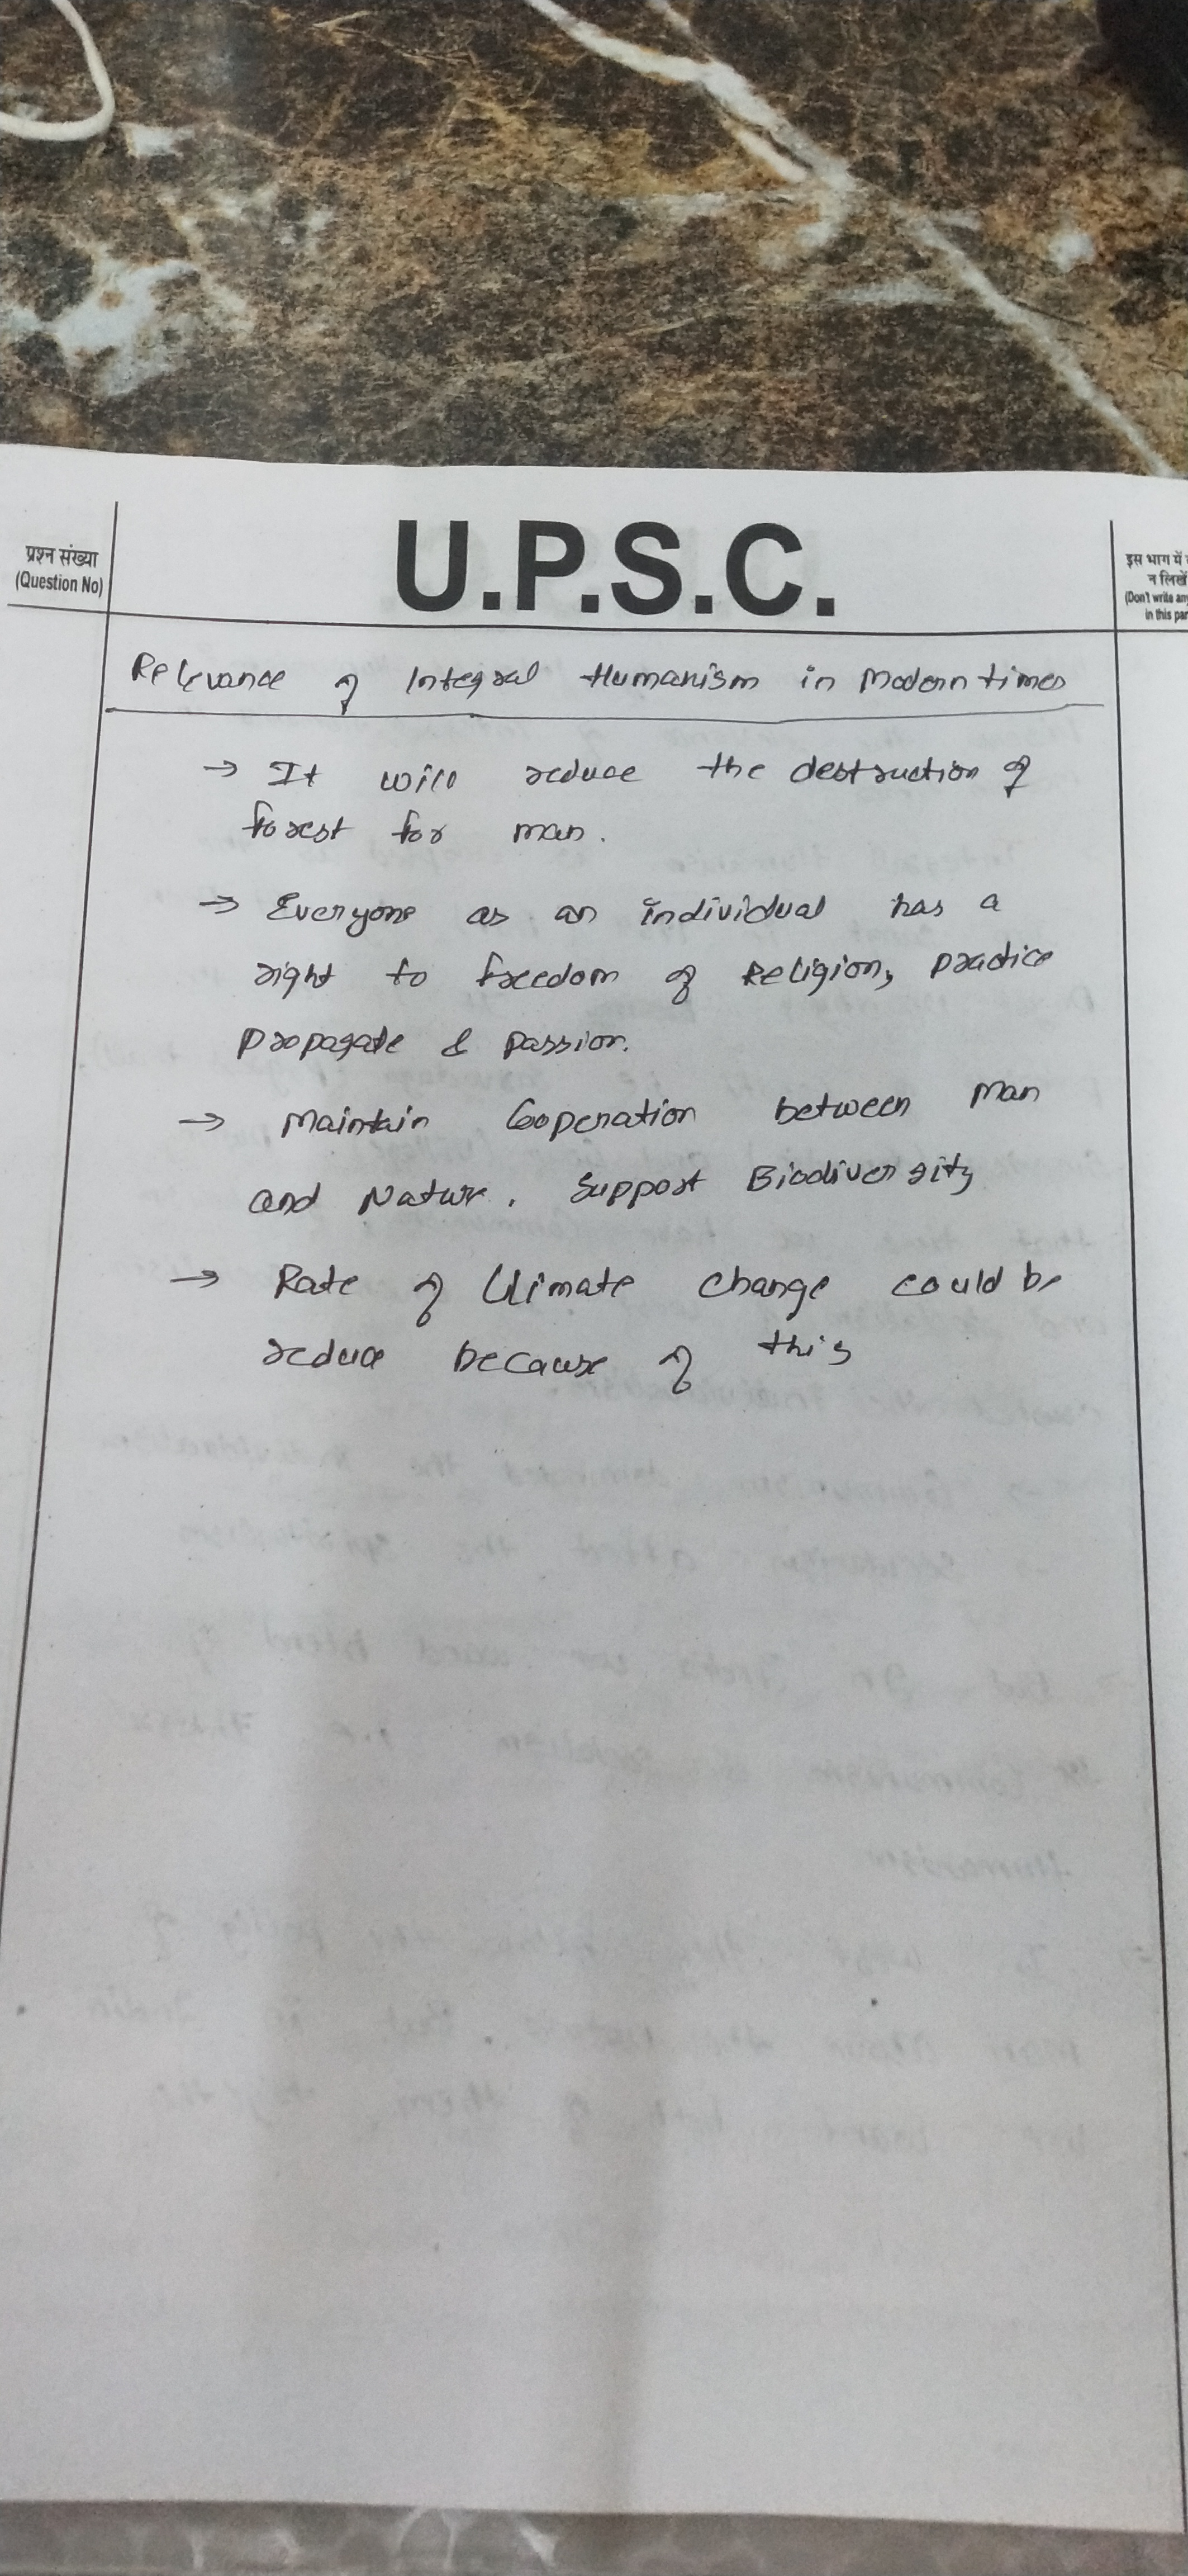 प्रश्न संख्या
(Question No)
U.P.S.C.
इस भाग में
न लिखें
(Don't write any
in this par
Relevance of Integral Humanism in Modern times
→ It will reduce the destruction of
forest for man.
→ Everyone as an individual has a
right to freedom of Religion, practice
propagate & passion.
→ Maintain Cooperation between Man
and Nature. Support Biodiversity
→ Rate of Climate change could be
reduce because of this